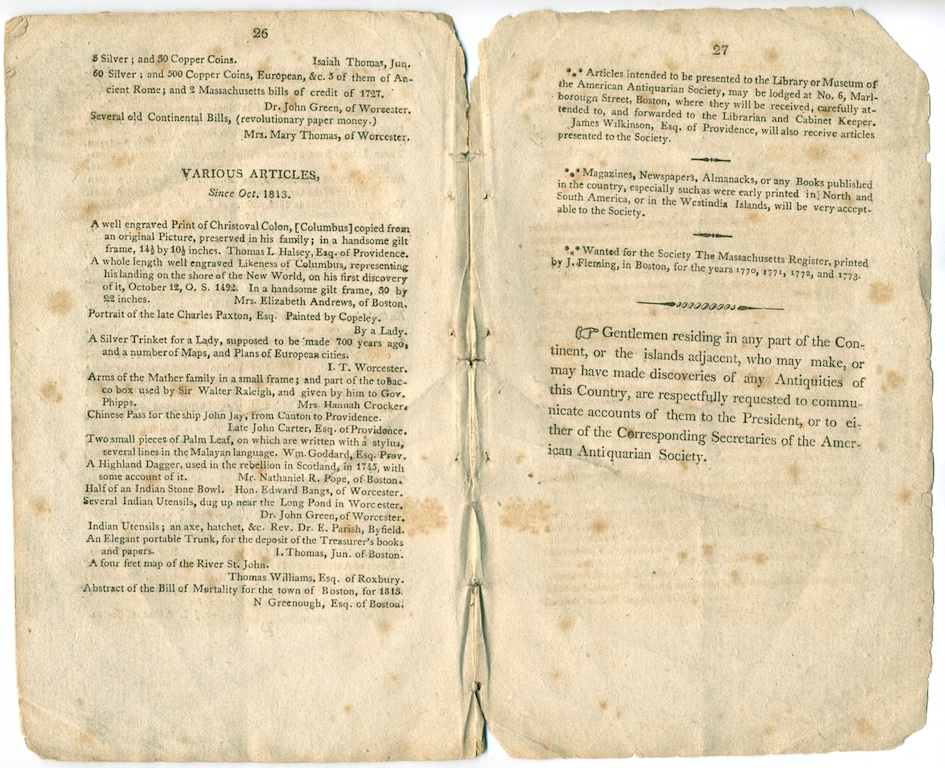 26
8 Silver ; and 30 Copper Coins. Isaiah Thomas, Jun.
60 Silver ; and 500 Copper Coins, European, &c. 5 of them of An-
cient Rome; and 2 Massachusetts bills of credit of 1727.
Dr. John Green, of Worcester.
Several old Continental Bills, (revolutionary paper money.)
Mrs. Mary Thomas, of Worcester.
VARIOUS ARTICLES,
Since Oct. 1813.
A well engraved Print of Christoval Colon, [Columbus] copied from
an original Picture, preserved in his family; in a handsome gilt
frame, 14½ by 10½ inches. Thomas L. Halsey, Esq. of Providence.
A whole length well engraved Likeness of Columbus, representing
his landing on the shore of the New World, on his first discovery
of it, October 12, O. S. 1492. In a handsome gilt frame, 30 by
22 inches. Mrs. Elizabeth Andrews, of Boston.
Portrait of the late Charles Paxton, Esq. Painted by Copeley.
By a Lady.
A Silver Trinket for a Lady, supposed to be made 700 years ago,
and a number of Maps, and Plans of European cities.
I. T. Worcester.
Arms of the Mather family in a small frame; and part of the tobac-
co box used by Sir Walter Raleigh, and given by him to Gov.
Phipps. Mrs. Hannah Crocker.
Chinese Pass for the ship John Jay, from Canton to Providence.
Late John Carter, Esq. of Providence.
Two small pieces of Palm Leaf, on which are written with a stylus,
several lines in the Malayan language. Wm. Goddard, Esq. Prov.
A Highland Dagger, used in the rebellion in Scotland, in 1745, with
some account of it. Mr. Nathaniel R. Pope, of Boston.
Half of an Indian Stone Bowl. Hon. Edward Bangs, of Worcester.
Several Indian Utensils, dug up near the Long Pond in Worcester.
Dr. John Green, of Worcester.
Indian Utensils ; an axe, hatchet, &c. Rev. Dr. E. Parish, Byfield.
An Elegant portable Trunk, for the deposit of the Treasurer's books
and papers. I. Thomas, Jun. of Boston.
A four feet map of the River St. John.
Thomas Williams, Esq. of Roxbury.
Abstract of the Bill of Mortality for the town of Boston, for 1813.
N Greenough, Esq. of Boston.
27
*** Articles intended to be presented to the Library or Museum of
the American Antiquarian Society, may be lodged at No. 6, Marl-
borough Street, Boston, where they will be received, carefully at-
tended to, and forwarded to the Librarian and Cabinet Keeper.
James Wilkinson, Esq. of Providence, will also receive articles
presented to the Society.
*** Magazines, Newspapers, Almanacks, or any Books published
in the country, especially such as were early printed in North and
South America, or in the Westindia Islands, will be very accept-
able to the Society.
*** Wanted for the Society The Massachusetts Register, printed
by J. Fleming, in Boston, for the years 1770, 1771, 1772, and 1773.
☞ Gentlemen residing in any part of the Con-
tinent, or the islands adjacent, who may make, or
may have made discoveries of any Antiquities of
this Country, are respectfully requested to commu-
nicate accounts of them to the President, or to ei-
ther of the Corresponding Secretaries of the Amer-
ican Antiquarian Society.